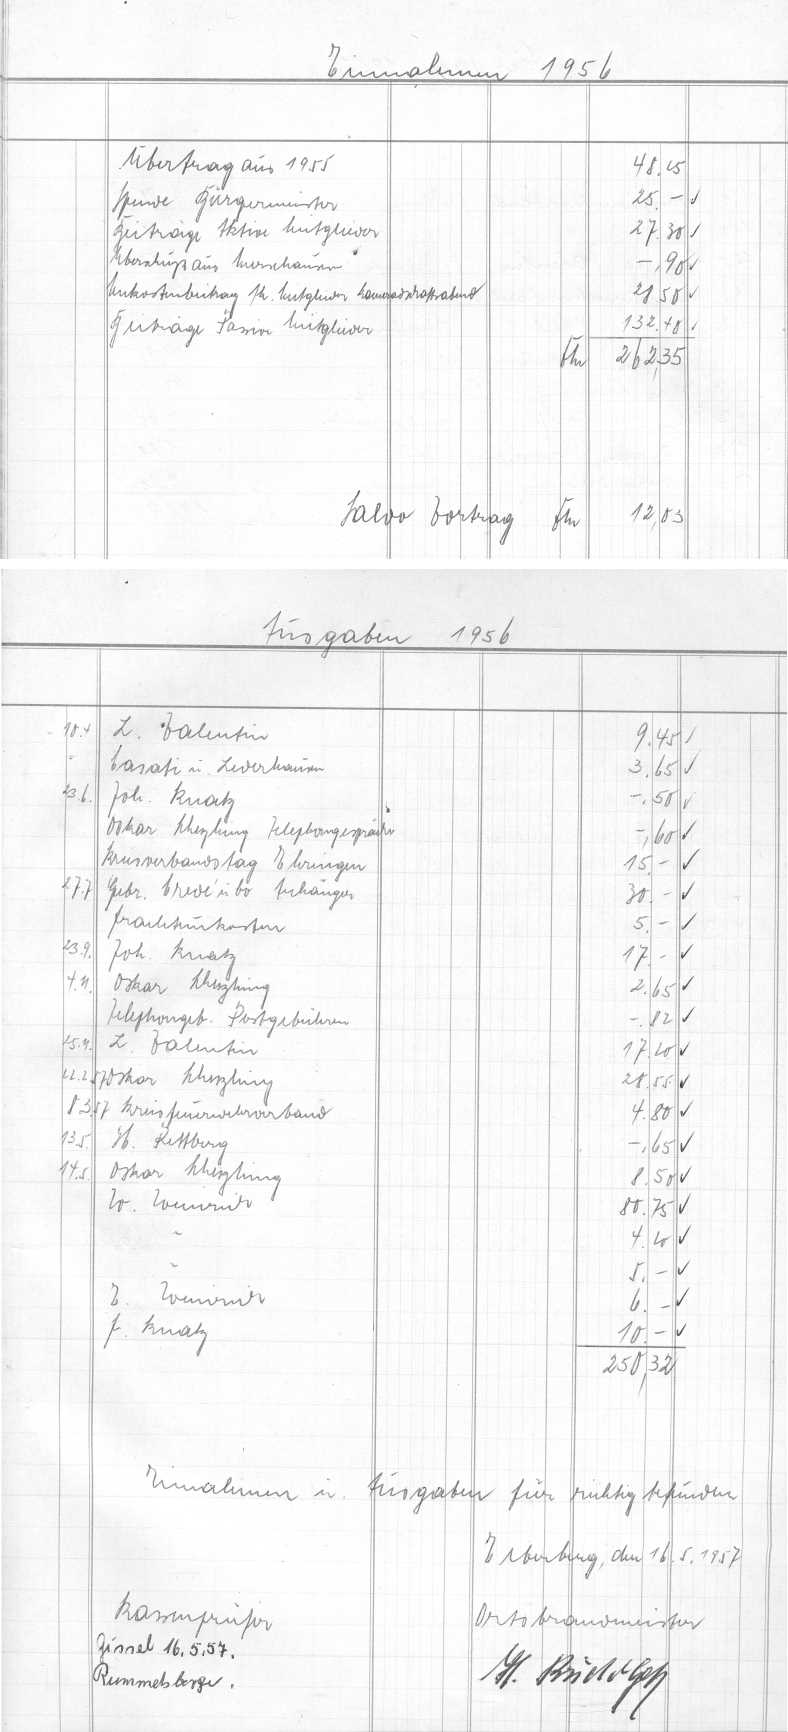 Einnahmen 1956
Übertrag aus 1955 48.25
Spende Bürgermeister 25.- ✓
Beiträge Aktive Mitglieder 27.30 ✓
Überschuß aus Merxhausen -.90 ✓
Unkostenbeitrag Mitglieder Kameradschaftsabend 28.50 ✓
Beiträge Passive Mitglieder 132.40 ✓
262,35
Saldo Vortrag 12,03
Ausgaben 1956
10.4 L. Valentin 9.45 ✓
" Casati u. Lederhausen 3.65 ✓
23.6. Joh. Knatz -.50 ✓
Oskar Telephongespräche -.60 ✓
Kreisverbandstag Ehringen 15.- ✓
27.7 Gebr. Credé u Co Anhänger 30.- ✓
Frachtunkosten 5.- ✓
23.9. Joh. Knatz 17.- ✓
4.11. Oskar 2.65 ✓
Telephongeb. Postgebühren -.82 ✓
25.11. L. Valentin 17.20 ✓
22.2.57 Oskar 28.55 ✓
8.3.57 Kreisfeuerwehrverband 4.80 ✓
13.5. H. Rettberg -.65 ✓
14.5. Oskar 8.50 ✓
W. 80.75 ✓
" 4.20 ✓
" 5.- ✓
E. 6.- ✓
J. Knatz 10.- ✓
250,32
Einnahmen u. Ausgaben für richtig befunden
Elberberg, den 16.5.1957
Kassenprüfer Ortsbrandmeister
Gissel 16.5.57.
Rummelsberger. H. Rudolph